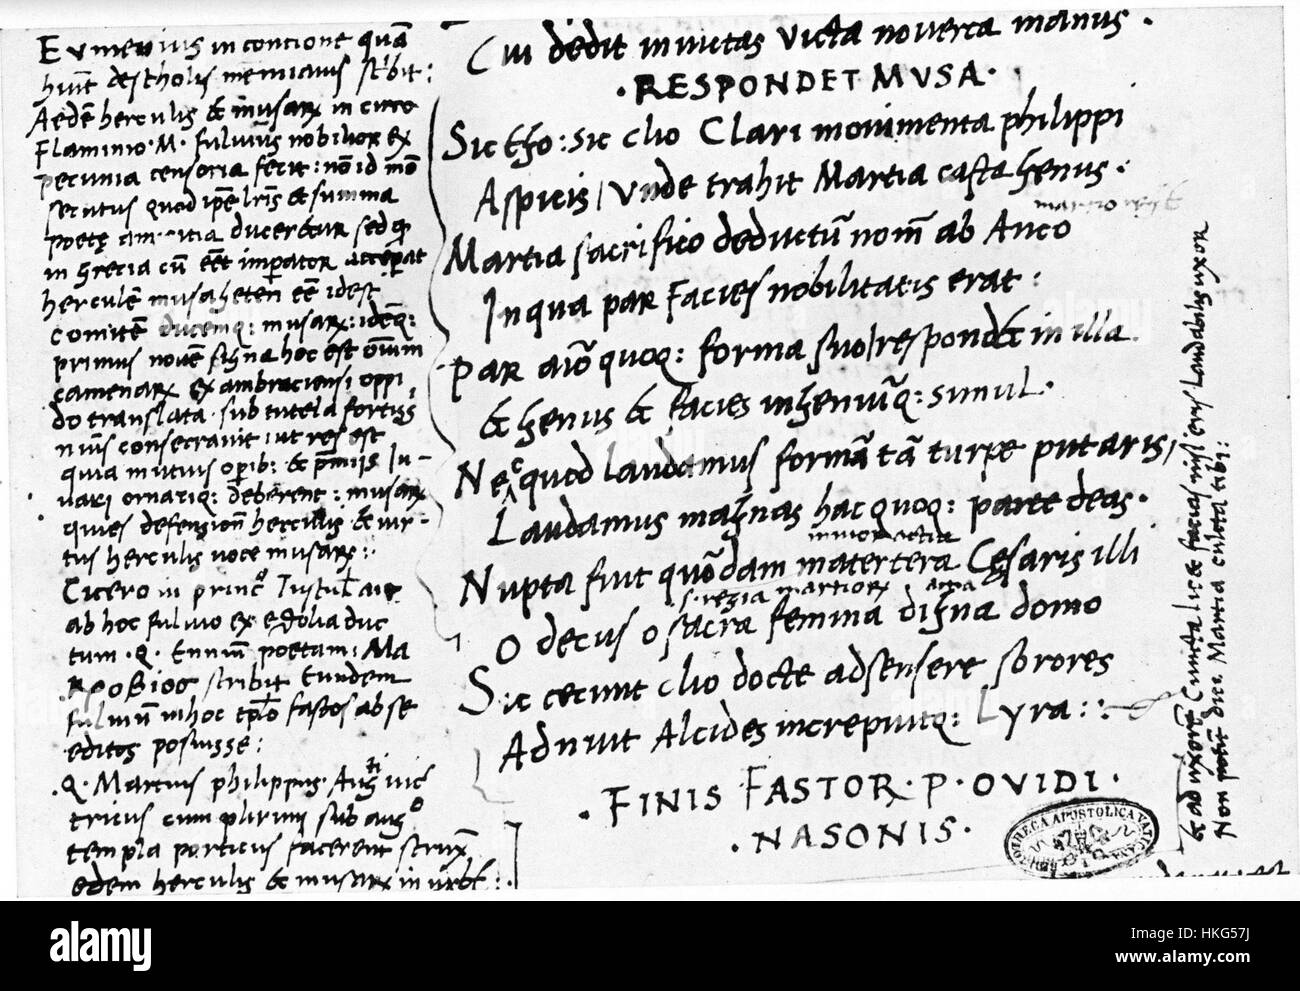 Eumenius in concione quā
hūt de scholis menianis scribit:
Aedē herculis & musarꝝ in circo
Flaminio. M. fulvius nobilior ex
pecunia censoria fecit: nō id mō
secutus quod ipse lr̄is & summa
poetę amicitia duceretur sed ꝙ
in grecia cū eēt imperator acceperat
herculē musagetē eē idest
comitē ducemq: musarꝝ: idemq:
primus novē signa hoc est oīum
camenarꝝ ex ambraciensi oppi
do translata sub tutela fortiss
numinis consecravit ut res est
quia mutuis operib: & premijs Iu-
vari ornariq: deberent: musarꝝ
quies defensiōe herculis & vir-
tus herculis voce musarꝝ:
Cicero in princ° Tuscul ait
ab hoc fulvio ex etolia duc
tum .Q. Enniū poetam: Ma
Ropbios scribit Eundem
fulviū in hoc tēplo fastos ab se
editos posuisse:
.Q. Martius philippus. Augti vic
tricus cum plurimi sub aug°
templa porticus facerent struxit
edem herculis & musarꝝ in urbe:
Cui dedit invictas victa noverca manus.
.RESPONDET MVSA.
Sic tho: sic clio Clari monimenta philippi
Aspicis / Unde trahit Martia casta genus.
Martia sacrifico deductū nom̄ ab Anco
In qua par facies nobilitatis erat:
par aīo quoq: forma suo / respond& in illa
& genus & facies ingeniūq: simul.
Nec quod laudamus formā tā turpe putaris,
Laudamus magnas hac quoq: parte deas.
Nupta fuit quōdam matertera Cęsaris illi
O decus o sacra femina digna domo
Sic cecinit clio docte adsensere sorores
Adnuit Alcides increpuitq: Lyra::
.FINIS FASTOR.P.OVIDI.
.NASONIS.
BIBLIOTHECA APOSTOLICA VATICANA
alamy
Image ID: HKG57J
www.alamy.com